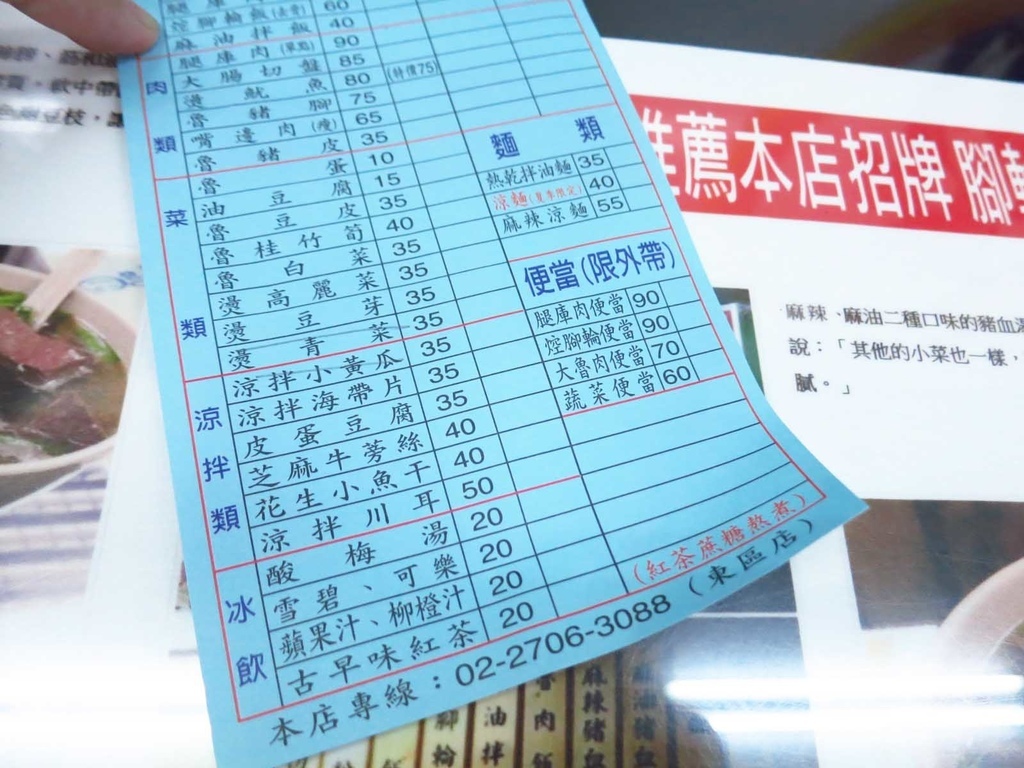 焢腳輪飯(去骨) 60
麻油拌飯 40
肉類
腿庫肉(單點) 90
大腸切盤 85
燙魷魚 80 (特價75)
魯豬腳 75
嘴邊肉(瘦) 65
魯豬皮 35
菜類
魯蛋 10
油豆腐 15
魯豆皮 35
魯桂竹筍 40
魯白菜 35
燙高麗菜 35
燙豆芽 35
燙青菜 35
涼拌類
涼拌小黃瓜 35
涼拌海帶片 35
皮蛋豆腐 35
芝麻牛蒡絲 40
花生小魚干 40
涼拌川耳 50
冰飲
酸梅湯 20
雪碧、可樂 20
蘋果汁、柳橙汁 20
古早味紅茶 20
麵類
熱乾拌油麵 35
涼麵(夏季限定) 40
麻辣涼麵 55
便當(限外帶)
腿庫肉便當 90
焢腳輪便當 90
大魯肉便當 70
蔬菜便當 60
(紅茶蔗糖熬煮)
本店專線：02-2706-3088 (東區店)
推薦本店招牌 腳
麻辣、麻油二種口味的豬血
說：「其他的小菜也一樣，
膩。」